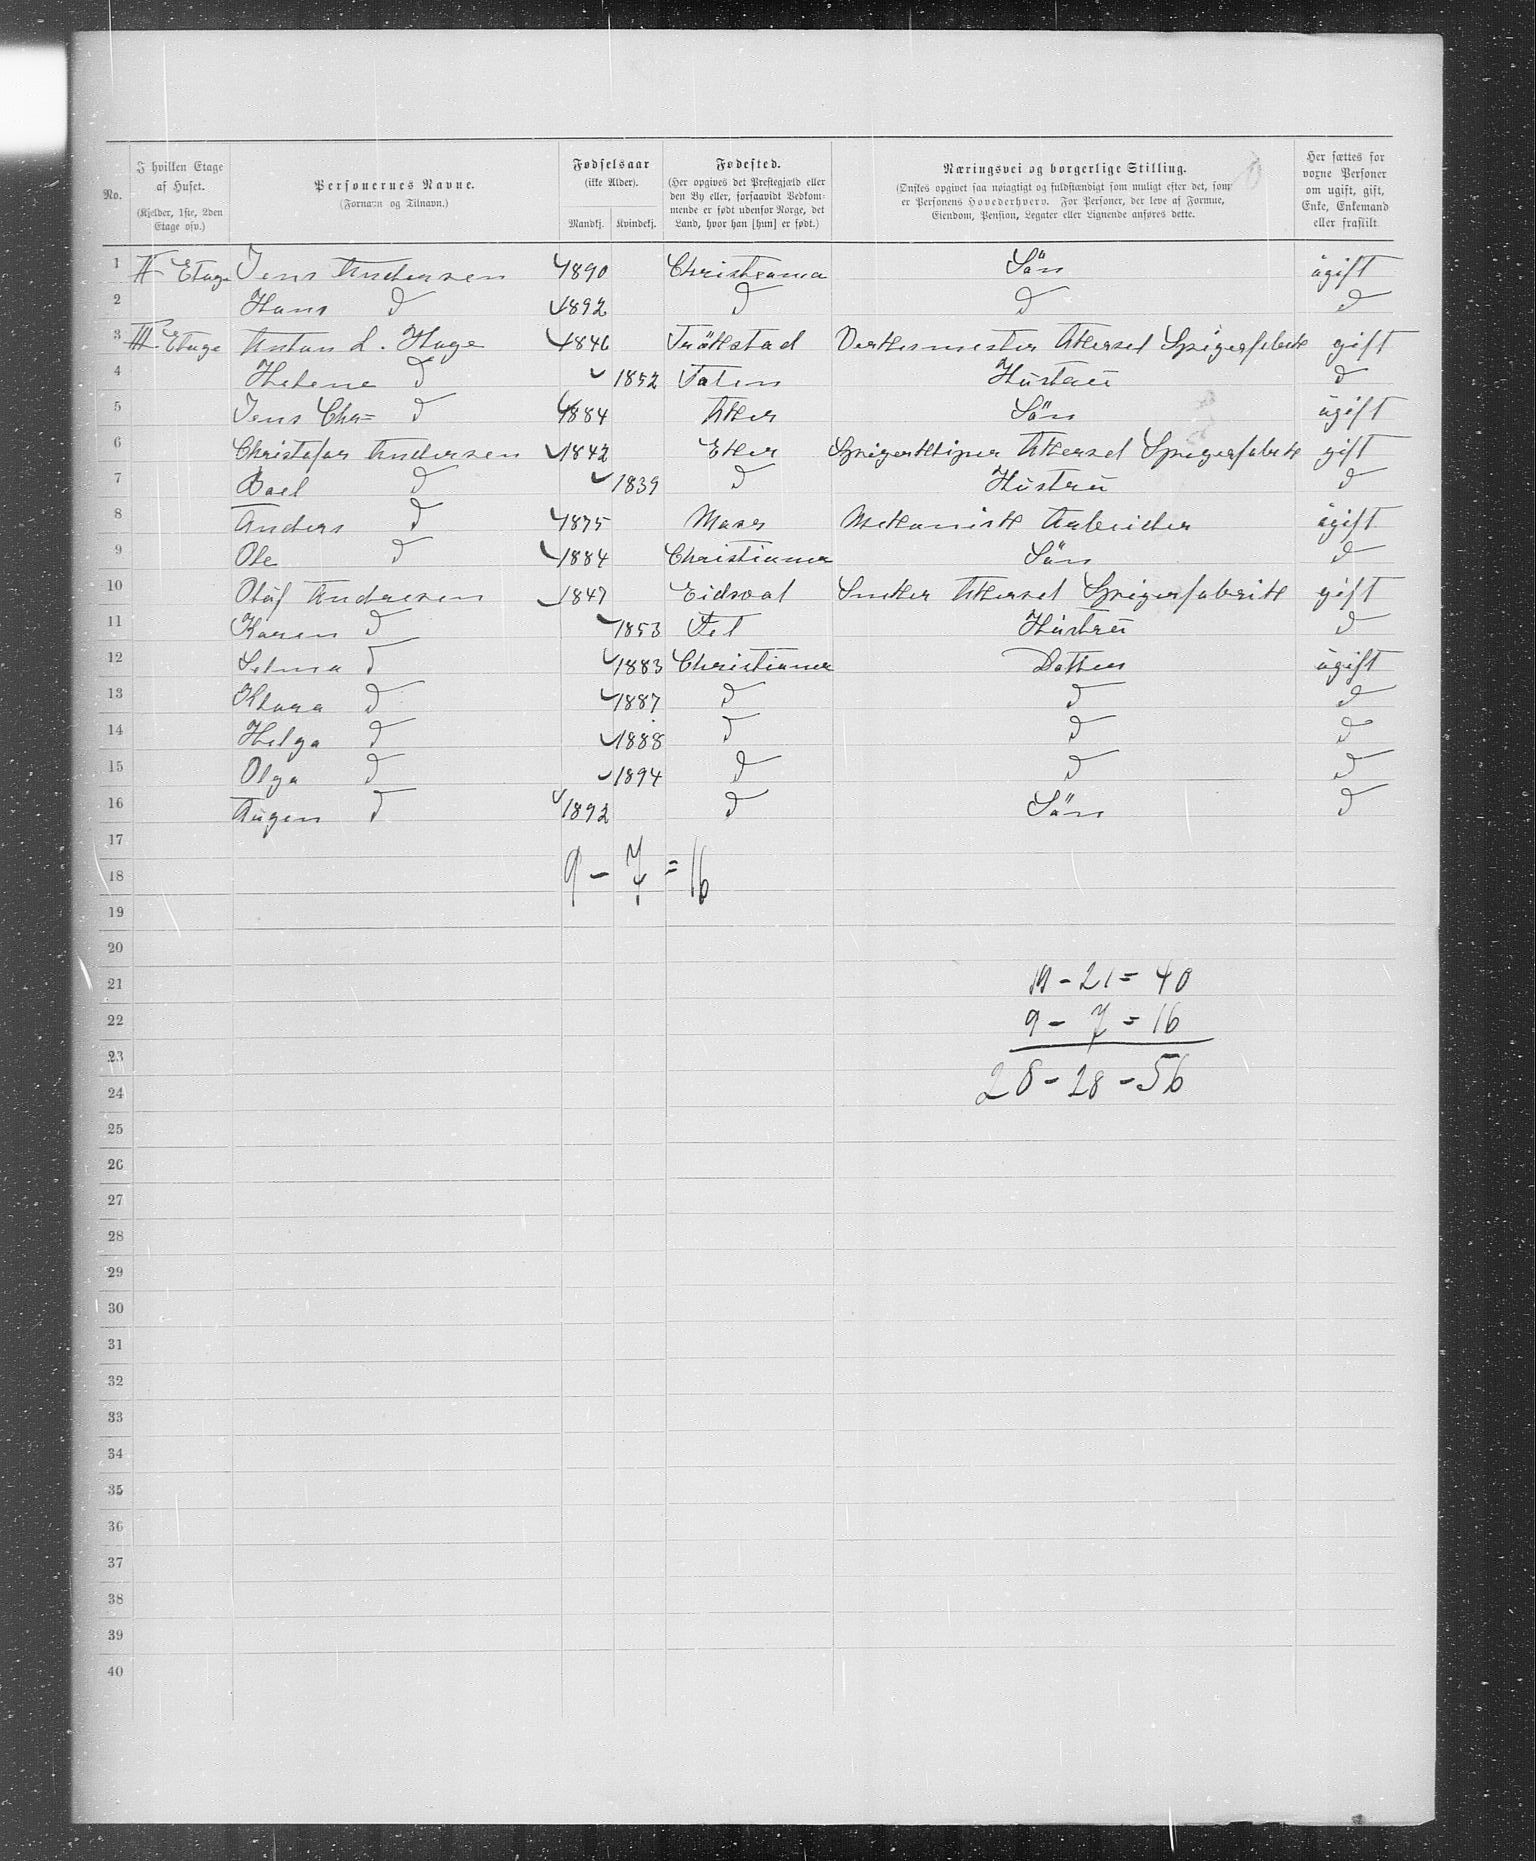 No. I hvilken Etage af Huset. (Kjelder, 1ste, 2den Etage osv.) Personernes Navne. (Fornavn og Tilnavn.) Fødselsaar (ikke Alder). Mandkj. Kvindekj. Fødested. (Her opgives det Prestegjæld eller den By eller, forsaavidt Vedkommende er født udenfor Norge, det Land, hvor han [hun] er født.) Næringsvei og borgerlige Stilling. (Ønskes opgivet saa nøiagtigt og fuldstændigt som muligt efter det, som er Personens Hovederhverv. For Personer, der leve af Formue, Eiendom, Pension, Legater eller Lignende anføres dette. Her sættes for voxne Personer om ugift, gift, Enke, Enkemand eller fraskilt
1 II Etage Jens Andersen 1890 Christiania Sön ugift
2 Hans d 1892 d d d
3 III Etage Anton L. Hage 1846 Trökstad Verkesmester Akersel Spigerfabrik gift
4 Helene d 1852 Toten Hustru d
5 Jens Chr= d 1884 Aker Sön ugift
6 Christofar Andersen 1842 Eker Spigerklipper Akersel Spigerfabrik gift
7 Boel d 1839 d Hustru d
8 Anders d 1875 Moss Mekanisk Arbeider ugift
9 Ole d 1884 Christiania Sön d
10 Oluf Andresen 1847 Eidsvol Smeker Akersel Spigerfabrik gift
11 Karen d 1853 Fet Hustru d
12 Selma d 1883 Christiania Datter ugift
13 Klara d 1887 d d d
14 Helga d 1888 d d d
15 Olga d 1894 d d d
16 Augen d 1892 d Sön d
17
18 9 - 7 = 16
19
20
21 19 - 21 = 40
22 9 - 7 = 16
23
24 28 - 28 - 56
25
26
27
28
29
30
31
32
33
34
35
36
37
38
39
40